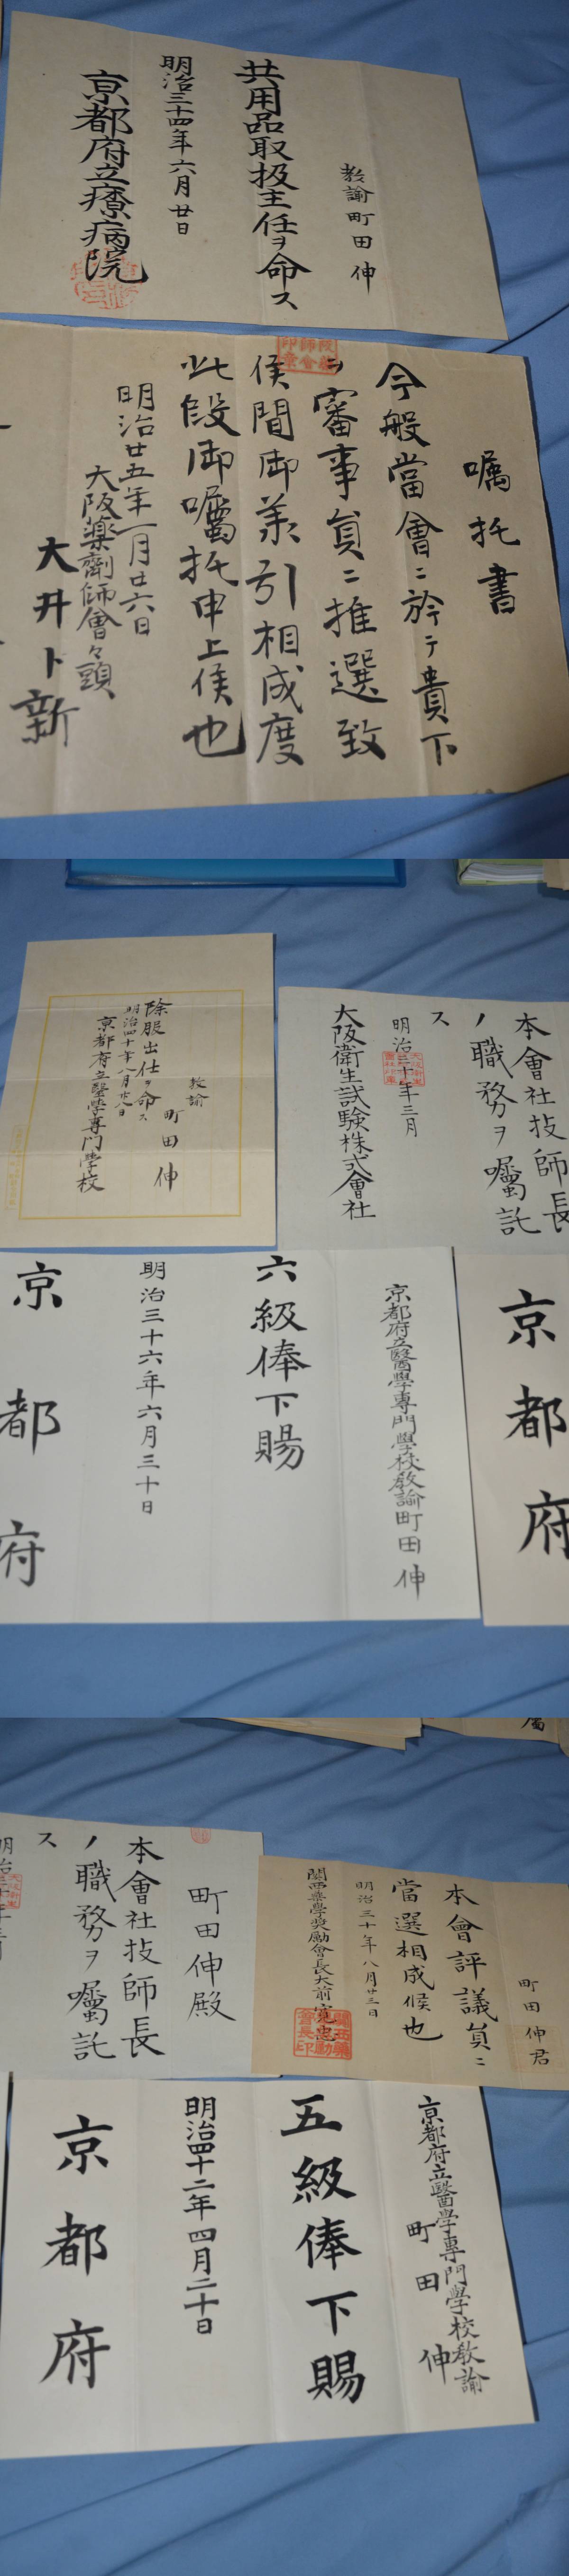 教諭町田伸
共用品取扱主任ヲ命ス
明治三十四年六月廿日
京都府立療病院
嘱托書
今般當會ニ於テ貴下
ヲ審事員ニ推選致
候間御羕引相成度
此段御囑托申上候也
明治廿五年一月廿六日
大阪藥劑師會々頭
大井卜新
教諭
町田伸
除服出仕ヲ命ス
明治四十年八月廿八日
京都府立醫學專門學校
本會社技師長
ノ職務ヲ囑託
ス
明治三十年三月
大阪衛生試験株式會社
京都府立醫學專門學校教諭町田伸
六級俸下賜
明治三十六年六月三十日
京都府
京都府
町田伸殿
本會社技師長
ノ職務ヲ囑託
ス
町田伸君
本會評議員ニ
當選相成候也
明治三十年八月廿三日
關西藥學奨勵會長大前寛忠
京都府立醫學專門學校教諭
町田伸
五級俸下賜
明治四十二年四月二十日
京都府